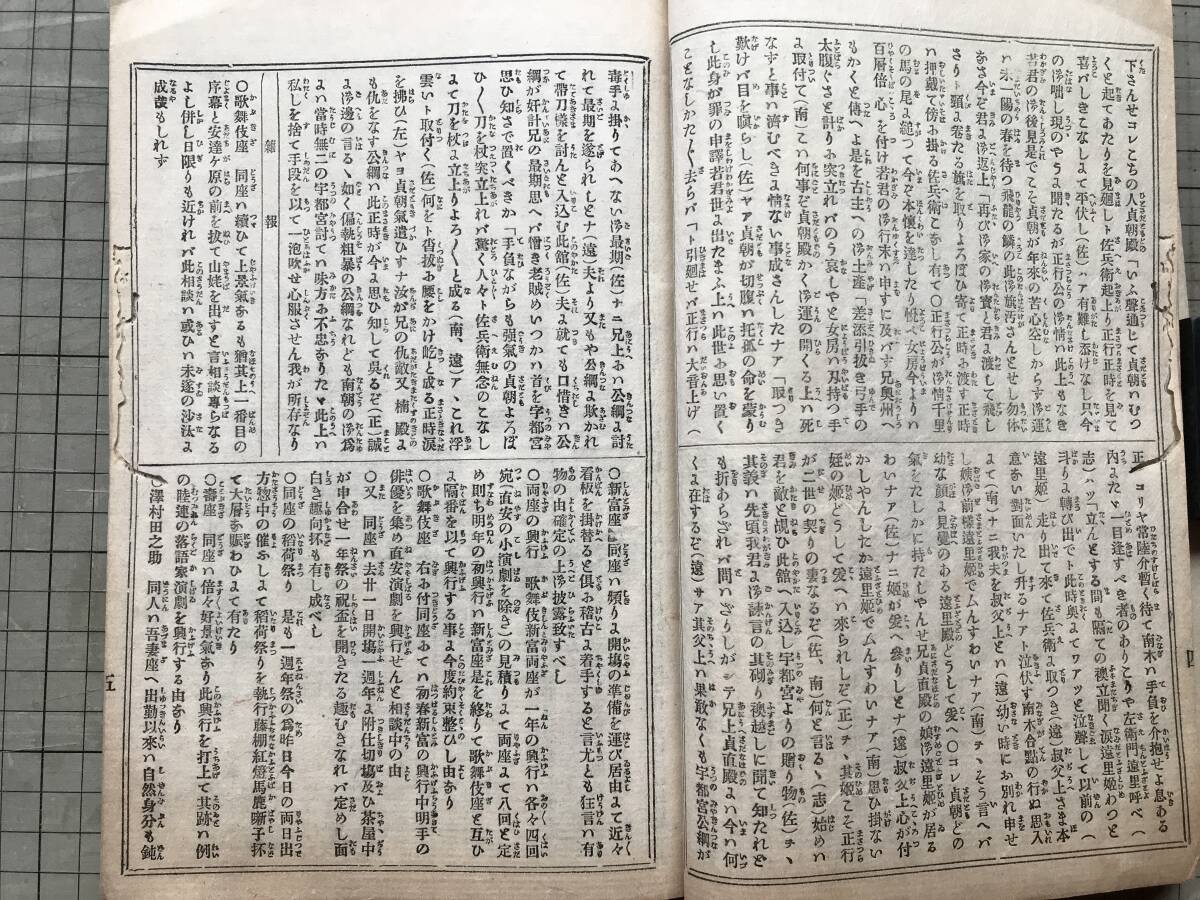 下さんせコレこちの人貞朝殿「いふ聲通じて貞朝いむつ
くと起てあたりを見廻しト佐兵衛起上り正行正時を見て
喜バしきこなしよて平伏し(佐)ハア有難し忝けなし只今
の御咄し現のやうよ聞たるが正行公の御情い此上もなき
若君の御後見是でこそ貞朝が年來の苦心空しからず御運
い末一陽の春を待つ飛龍の鱗の此御旗汚さんとせし勿体
なさ今ぞ君よ御返上「再び御家の御寶と君よ渡して飛し
さりト頸よ卷たる旗を取りよろぼひ寄て正時よ渡す正時
い押戴て傍よ掛る佐兵衛こなし有て〇正行公が御情千里
の馬の尾よ縋つて今ぞ本懷を達したり悦べ女房今よりい
百層倍 心を付け若君の御行末い申すに及バす兄奧州へ
もかくと傳へよ是を古主への御土產「差添引拔き弓手の
太腹ぐさと計りよ突立れバのう哀しやと女房い刃持つ手
よ取付て(南)こい何事ぞ貞朝殿かく御運の開くる上い死
なすと事い濟むべきよ情ない事成さんしたナア「取つき
歎けバ目を瞋らし(佐)ヤア貞朝が切腹い托孤の命を蒙り
し此身が罪の申譯若君世よ出たまふ上い此世よ思い置く
ことなしかた〳〵去らバ「ト引廻せバ正行い大音上げ(
正)コリヤ常陸介暫く待て南木い手負を介抱せよ息ある
内よたゞ一目逢すべき者のありこりや左衛門遠里呼べ(
志)ハツ「立んとする間も隔ての襖立聞く涙遠里姬わつと
斗りよ轉び出でト此時奧よてワアツと泣聲して以前の(
遠里姬 走り出て來て佐兵衛よ取つき(遠)叔父上さま本
意ない對面いたし升るナアト泣伏す南木合點の行ぬ思入
よて(南)ナニ我夫を叔父上とい(遠)幼い時にお別れ申せ
幼な顏よ見覺のある遠里殿どうして爰へ〇コレ貞朝どの
氣をたしかに持たしやんせ兄貞直殿の娘御遠里姬が居る
わいナア(佐)ナニ姬が爰へ參りしとナ(遠)叔父上心が付
かしやんしたか遠里姬でムんすわいナア(南)思ひ掛ない
姪の姬どうして爰へい來られしぞ(正)チ、其姬こそ正行
が二世の契りの妻なるぞ(佐、南)何と言る丶(志)始めい
君を敵と覗ひ此館へ入込し宇都宮よりの贈り物(佐)チ丶
其義い先頃我君よ御諫言の其砌り襖越しに聞て知たれど
も折あらざれバ問いざりしがシテ兄上貞直殿よい今い何
くよ在するぞ(遠)サア其父上い果敢なくも宇都宮公綱が
四
毒手よ掛りてあへない御最期(佐)ナニ兄上よい公綱よ討
れて最期を遂げられしとナ(遠)夫より又もや公綱よ欺かれ
て帶刀樣を討んと入込む此館(佐)夫よ就ても口惜き公
綱が奸計兄の最期思へバ憎き老賊めいつかい首を宇都宮
思ひ知さで置くべきか「手負ながらも强氣の貞朝よろぼ
ひ〳〵刀を杖突立上れバ驚く人々ト佐兵衛無念のこなし
よて刀を杖よ立上りよろ〳〵と成る(南、遠)ア丶これ浮
雲いト取付く(佐)何をト沓拔よ腰をかけ屹と成る正時淚
を拂ひ(左)ヤヨ貞朝氣遣ひすナ汝が兄の仇敵又 楠 殿よ
も仇をなす公綱い此正時が今よ思ひ知して吳るぞ(正)誠
よ御邊の言る丶如く偏執粗暴の公綱なれども南朝の御爲
よい當時無二の宇都宮討てい味方よ不忠なりたゞ此上い
私しを捨て手段を以て一泡吹せ心服させん我が所存なり
雜報
〇歌舞伎座 同座い續ひて上景氣なるも猶其上一番目の
序幕と安達ヶ原の前を拔て山姥を出すと言相談專らなる
よし併し日限りも近ければ此相談い或ひい未遂の沙汰よ
成歟もしれず
〇新富座 同座い頻りよ開塲の準備を運び居由よて近々
看板を掛替ると倶よ稽古よ着手すると言尤とも狂言い有
物の由確定の上御披露致すべし
〇両座の興行 歌舞伎新富両座が一年の興行い各々四回
宛(直安の小演劇を除き)の見積りよて両座よて八回と定
め則ち明年の初興行い新富座是を終りて歌舞伎座と互ひ
よ隔番を以て興行する事よ今度約束整ひし由なり
〇歌舞伎座 右よ付同座よてい初春新富の興行中明手の
俳優を集め直安演劇を興行せんと相談中の由
〇又 同座い去廿一日開塲一週年よ附仕切塲及び茶屋中
が申合せ一年祭の祝盃を開きたる趣むきなれバ定めし面
白き趣向抔も有し成べし
〇同座の稻荷祭り 是も一週年祭の爲昨日今日の両日出
方惣中の催ふしよて稻荷祭りを執行藤棚紅燈馬鹿囃子抔
て大層な賑わひよて有たり
〇壽座 同座い倍々好景氣なり此興行を打上て其跡い例
の睦連の落語家演劇を興行する由なり
〇澤村田之助 同人い吾妻座へ出勤以來い自然身分も鈍
五